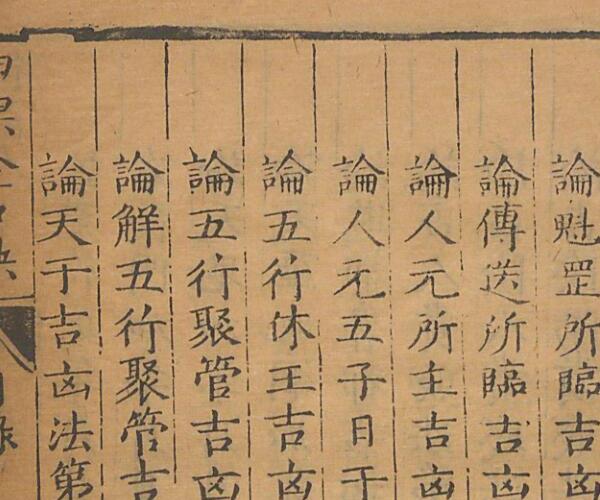 論魁罡所臨吉
論傳送所臨吉凶
論人元所主吉凶
論人元五子日干
論五行休王吉凶
論五行聚管吉凶
論解五行聚管吉
論天干吉凶法第
目錄